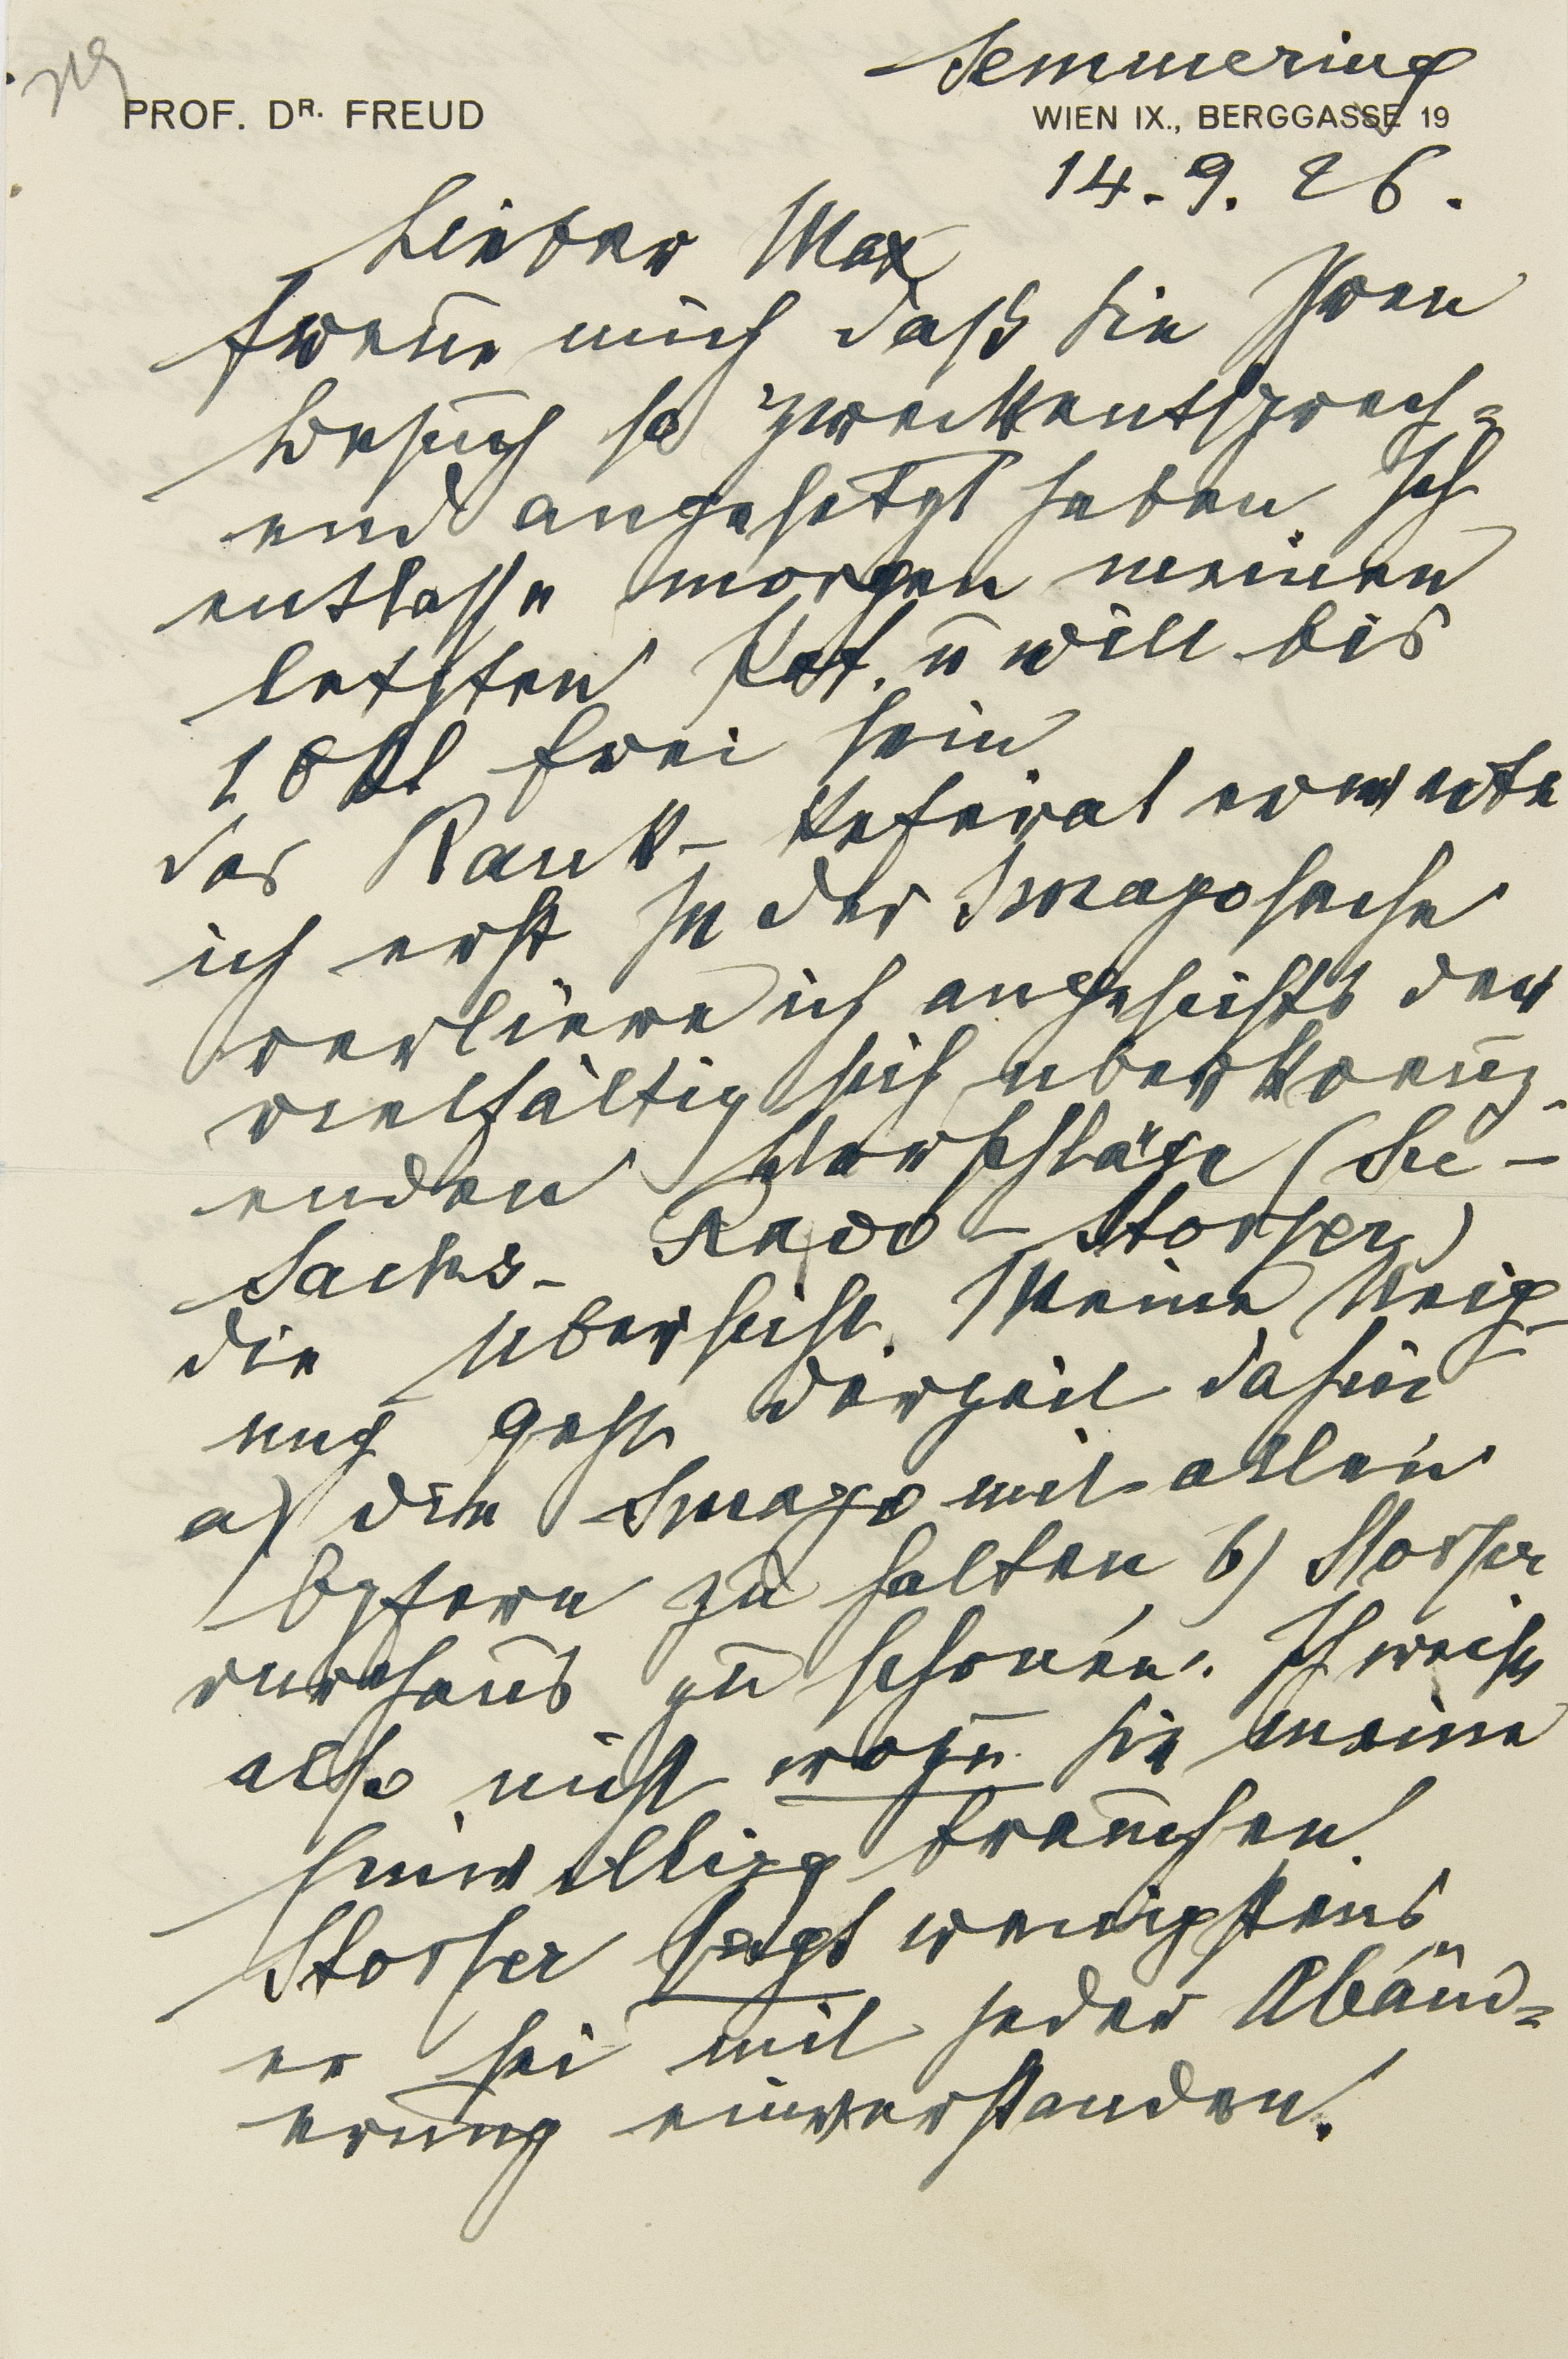 PROF. DR. FREUD
Semmering
WIEN IX., BERGGASSE 19
14. 9. 26.
Lieber Max
Freue mich daß Sie Ihren
Besuch so zweckentsprech=
end angesetzt haben. Ich
entlasse morgen meinen
letzten Pat. u will bis
1 Okt frei sein
Das Rank-Referat erwarte
ich erst. In der Imagosache
verliere ich angesichts der
vielfältig sich überkreuz-
enden Vorschläge (Sie –
Sachs – Rado – Storfer)
die Übersicht. Meine Neig-
ung geht derzeit dahin
a) die Imago mit allen
Opfern zu halten, b) Storfer
durchaus zu schonen. Ich weiß
also nicht wozu Sie meine
Einwillig brauchen.
Storfer sagt wenigstens
er sei mit jeder Abänd=
erung einverstanden.